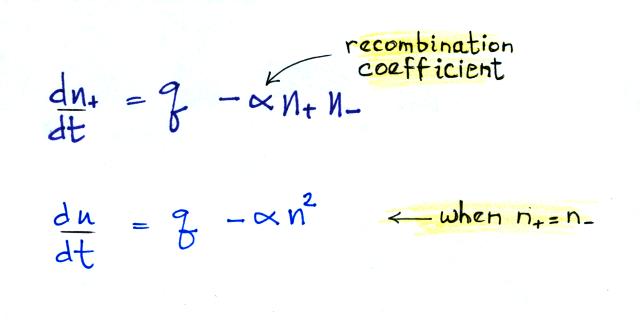 recombination
coefficient
dn₊/dt = q - ∝ n₊ n₋
dn/dt = q - ∝ n² ← when n₊ = n₋